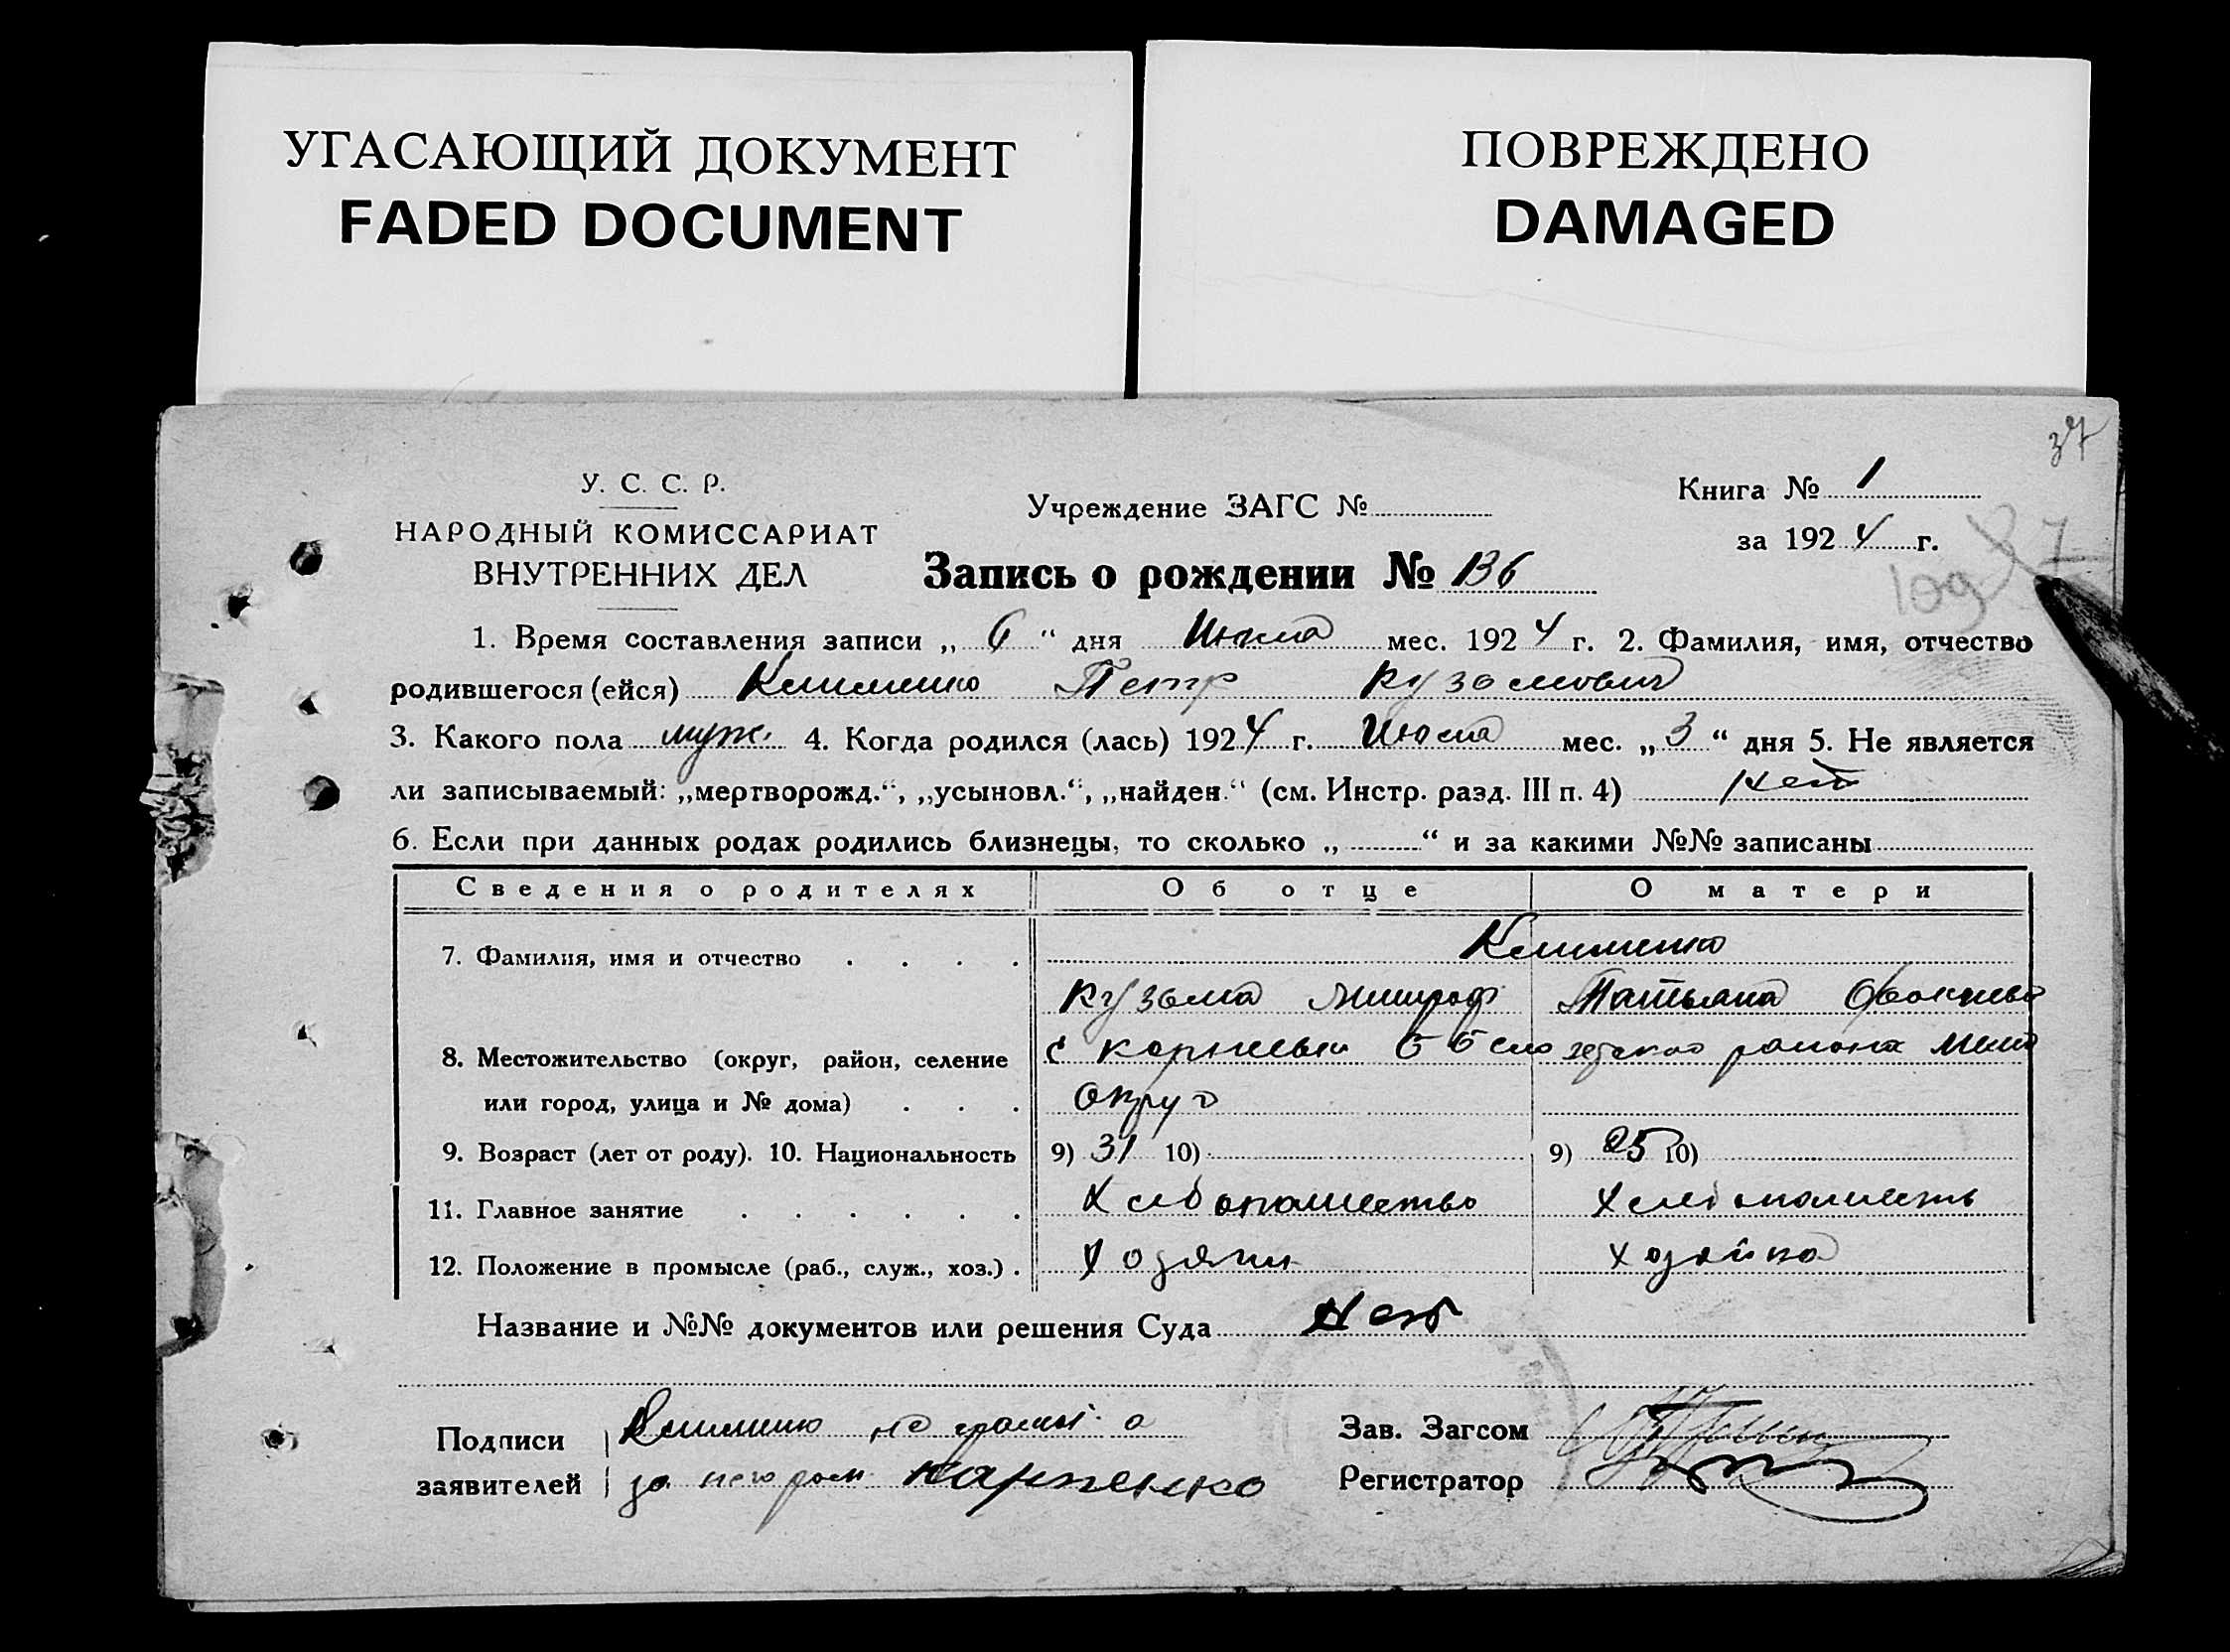 УГАСАЮЩИЙ ДОКУМЕНТ
FADED DOCUMENT
ПОВРЕЖДЕНО
DAMAGED
37
У. С. С. Р.
НАРОДНЫЙ КОМИССАРИАТ
ВНУТРЕННИХ ДЕЛ
Учреждение ЗАГС №
Книга № 1
за 1924 г.
109
Запись о рождении № 136
1. Время составления записи „ 6 “ дня Июля мес. 1924 г. 2. Фамилия, имя, отчество
родившегося (ейся) Клименко Петр Кузьмович
3. Какого пола муж. 4. Когда родился (лась) 1924 г. Июля мес. „ 3 “ дня 5. Не является
ли записываемый: „мертворожд.“, „усыновл.“, „найден.“ (см. Инстр. разд. III п. 4) нет
6. Если при данных родах родились близнецы, то сколько „ “ и за какими №№ записаны
Сведения о родителях Об отце О матери
7. Фамилия, имя и отчество Клименко
Кузьма Татьяна
8. Местожительство (округ, район, селение с района
или город, улица и № дома) округ
9. Возраст (лет от роду). 10. Национальность 9) 31 10) 9) 25 10)
11. Главное занятие Хлебопашество Хлебопашеств
12. Положение в промысле (раб., служ., хоз.) Хозяин Хозяйка
Название и №№ документов или решения Суда Нет
Подписи Клименко а
заявителей за него Карпенко
Зав. Загсом
Регистратор